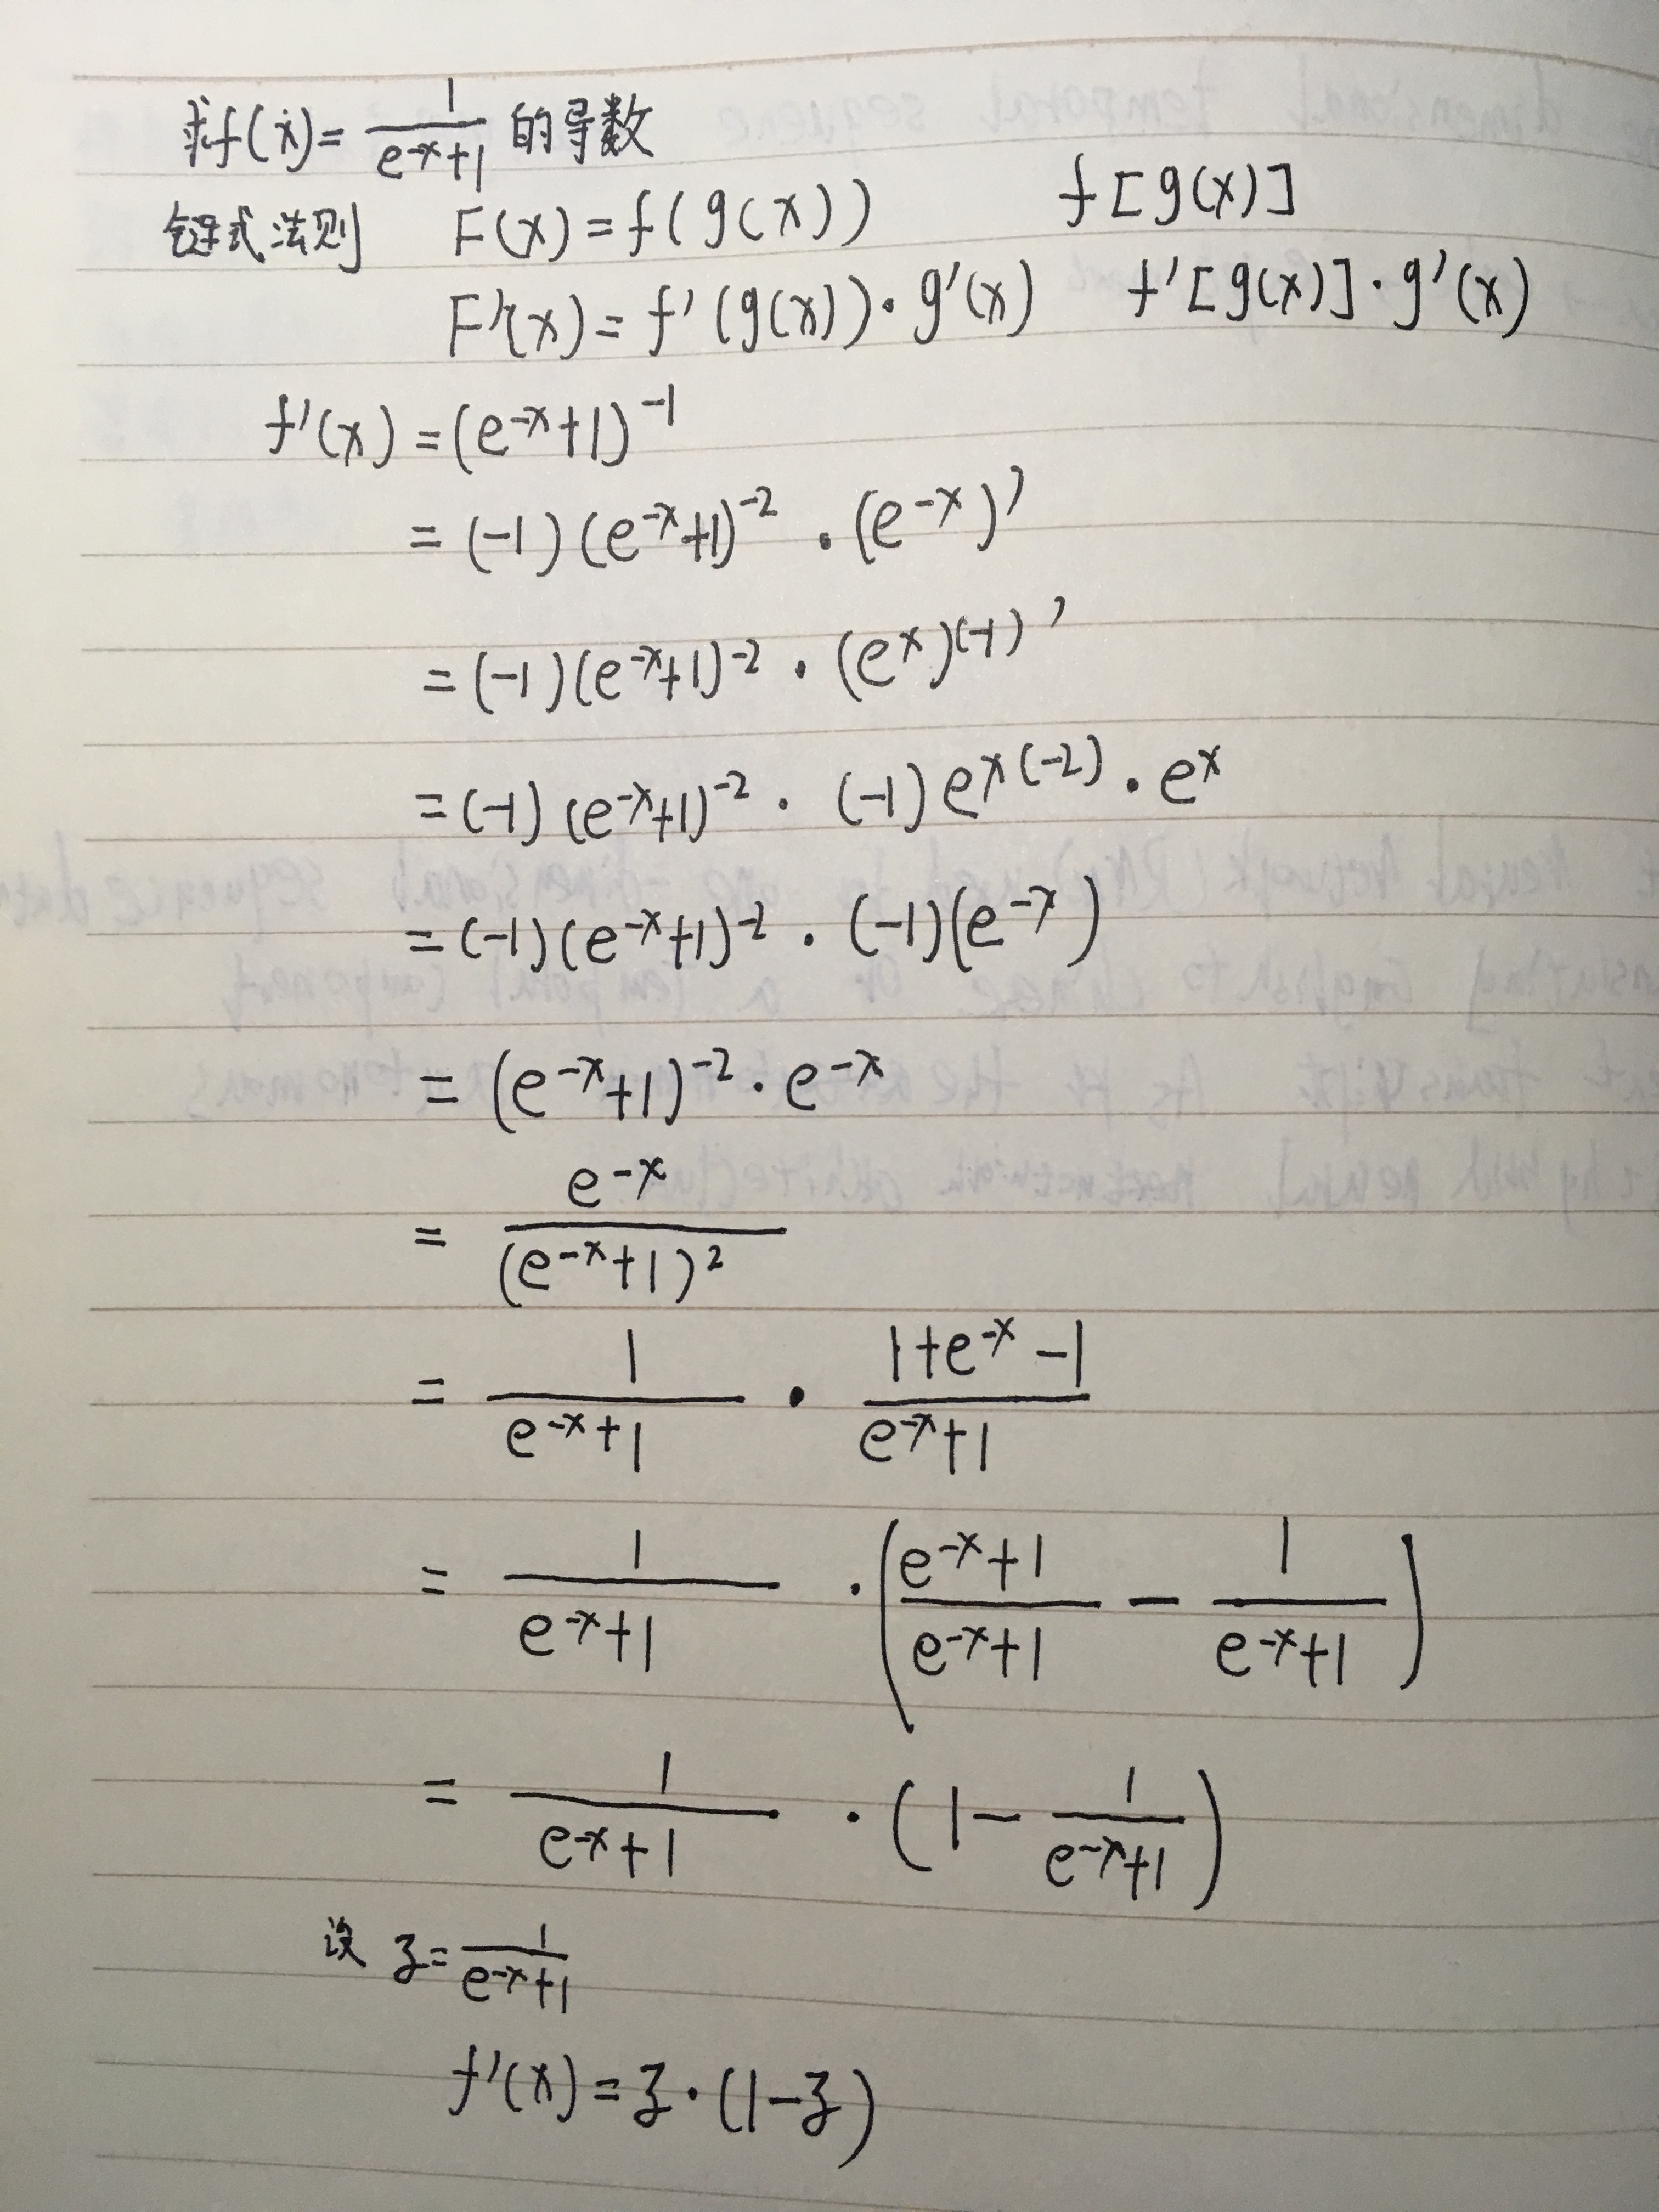 求f(x)= 1/(e^-x+1) 的导数
链式法则 F(x)=f(g(x)) f[g(x)]
F'(x)=f'(g(x))·g'(x) f'[g(x)]·g'(x)
f'(x)=(e^-x+1)^-1
=(-1)(e^-x+1)^-2·(e^-x)'
=(-1)(e^-x+1)^-2·(e^x)^(-1)'
=(-1)(e^-x+1)^-2·(-1)e^x(-2)·e^x
=(-1)(e^-x+1)^-2·(-1)(e^-x)
=(e^-x+1)^-2·e^-x
= e^-x/(e^-x+1)^2
= 1/(e^-x+1) · (1+e^-x-1)/(e^-x+1)
= 1/(e^-x+1) ·((e^-x+1)/(e^-x+1) - 1/(e^-x+1))
= 1/(e^-x+1) ·(1- 1/(e^-x+1))
设 z= 1/(e^-x+1)
f'(x)=z·(1-z)